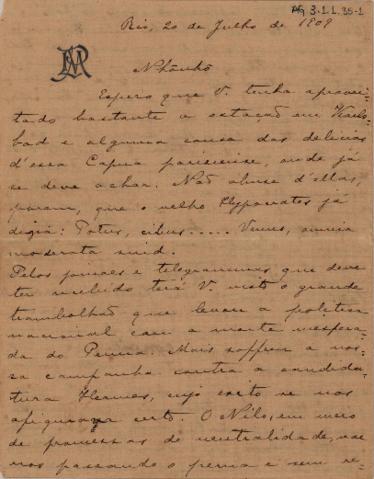 AG 3.1.1.35-1
Rio, 20 de Julho de 1909
Nhônhô
Espero que V. tenha aprovei-
tado bastante a estação em Karls-
bad e alguma cousa das delicias
d'essa Capua parisiense, onde já
se deve achar. Não abuse d'ellas,
porem, que o velho Hyppocrates já
dizia: Potus, cibus..... Venus, omnia
moderata sint.
Pelos jornaes e telegrammas que deve
ter recebido terá V. visto o grande
trambolhão que levou a politica
nacional com a morte inespera-
da do Penna. Mais soffreu a nos-
sa campanha contra a candida-
tura Hermes, cujo exito se nos
afigurava certo. O Nilo, em meio
de promessas de neutralidade, vae
nos passando a perna e sem re-